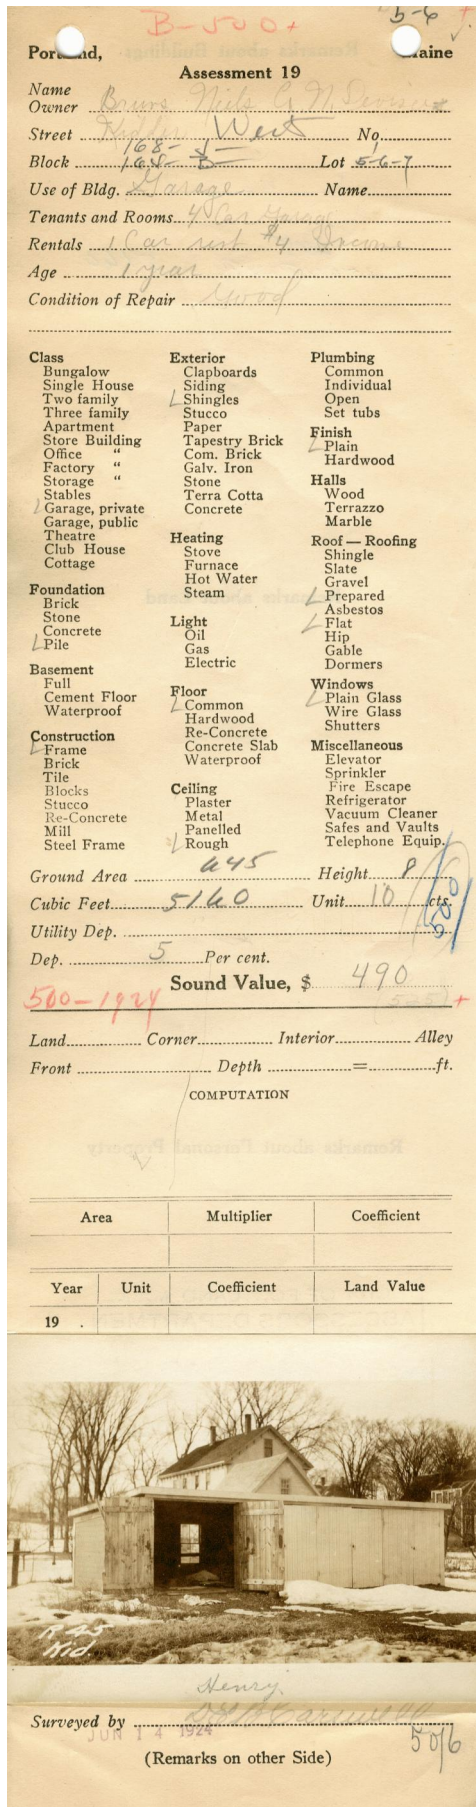 B-500+
5-6
Portland, Maine
Assessment 19
Name
Owner Bruns Niels C.
Street West No.
168- J
Block 168- B Lot 5-6-7
Use of Bldg. Garage Name
Tenants and Rooms 4 Car Garage
Rentals 1 Car rent $4 Income
Age 1 year
Condition of Repair Good
Class
Bungalow
Single House
Two family
Three family
Apartment
Store Building
Office "
Factory "
Storage "
Stables
Garage, private
Garage, public
Theatre
Club House
Cottage
Foundation
Brick
Stone
Concrete
Pile
Basement
Full
Cement Floor
Waterproof
Construction
Frame
Brick
Tile
Blocks
Stucco
Re-Concrete
Mill
Steel Frame
Exterior
Clapboards
Siding
Shingles
Stucco
Paper
Tapestry Brick
Com. Brick
Galv. Iron
Stone
Terra Cotta
Concrete
Heating
Stove
Furnace
Hot Water
Steam
Light
Oil
Gas
Electric
Floor
Common
Hardwood
Re-Concrete
Concrete Slab
Waterproof
Ceiling
Plaster
Metal
Panelled
Rough
Plumbing
Common
Individual
Open
Set tubs
Finish
Plain
Hardwood
Halls
Wood
Terrazzo
Marble
Roof — Roofing
Shingle
Slate
Gravel
Prepared
Asbestos
Flat
Hip
Gable
Dormers
Windows
Plain Glass
Wire Glass
Shutters
Miscellaneous
Elevator
Sprinkler
Fire Escape
Refrigerator
Vacuum Cleaner
Safes and Vaults
Telephone Equip.
Ground Area 645 Height 8
Cubic Feet 5160 Unit 10 cts.
500
Utility Dep.
Dep. 5 Per cent.
Sound Value, $ 490
500-1924 (505) +
Land Corner Interior Alley
Front Depth = ft.
COMPUTATION
Area Multiplier Coefficient
Year Unit Coefficient Land Value
19 .
R 45
Kid.
Henry
Surveyed by
JUN 14 1924
50/6
(Remarks on other Side)